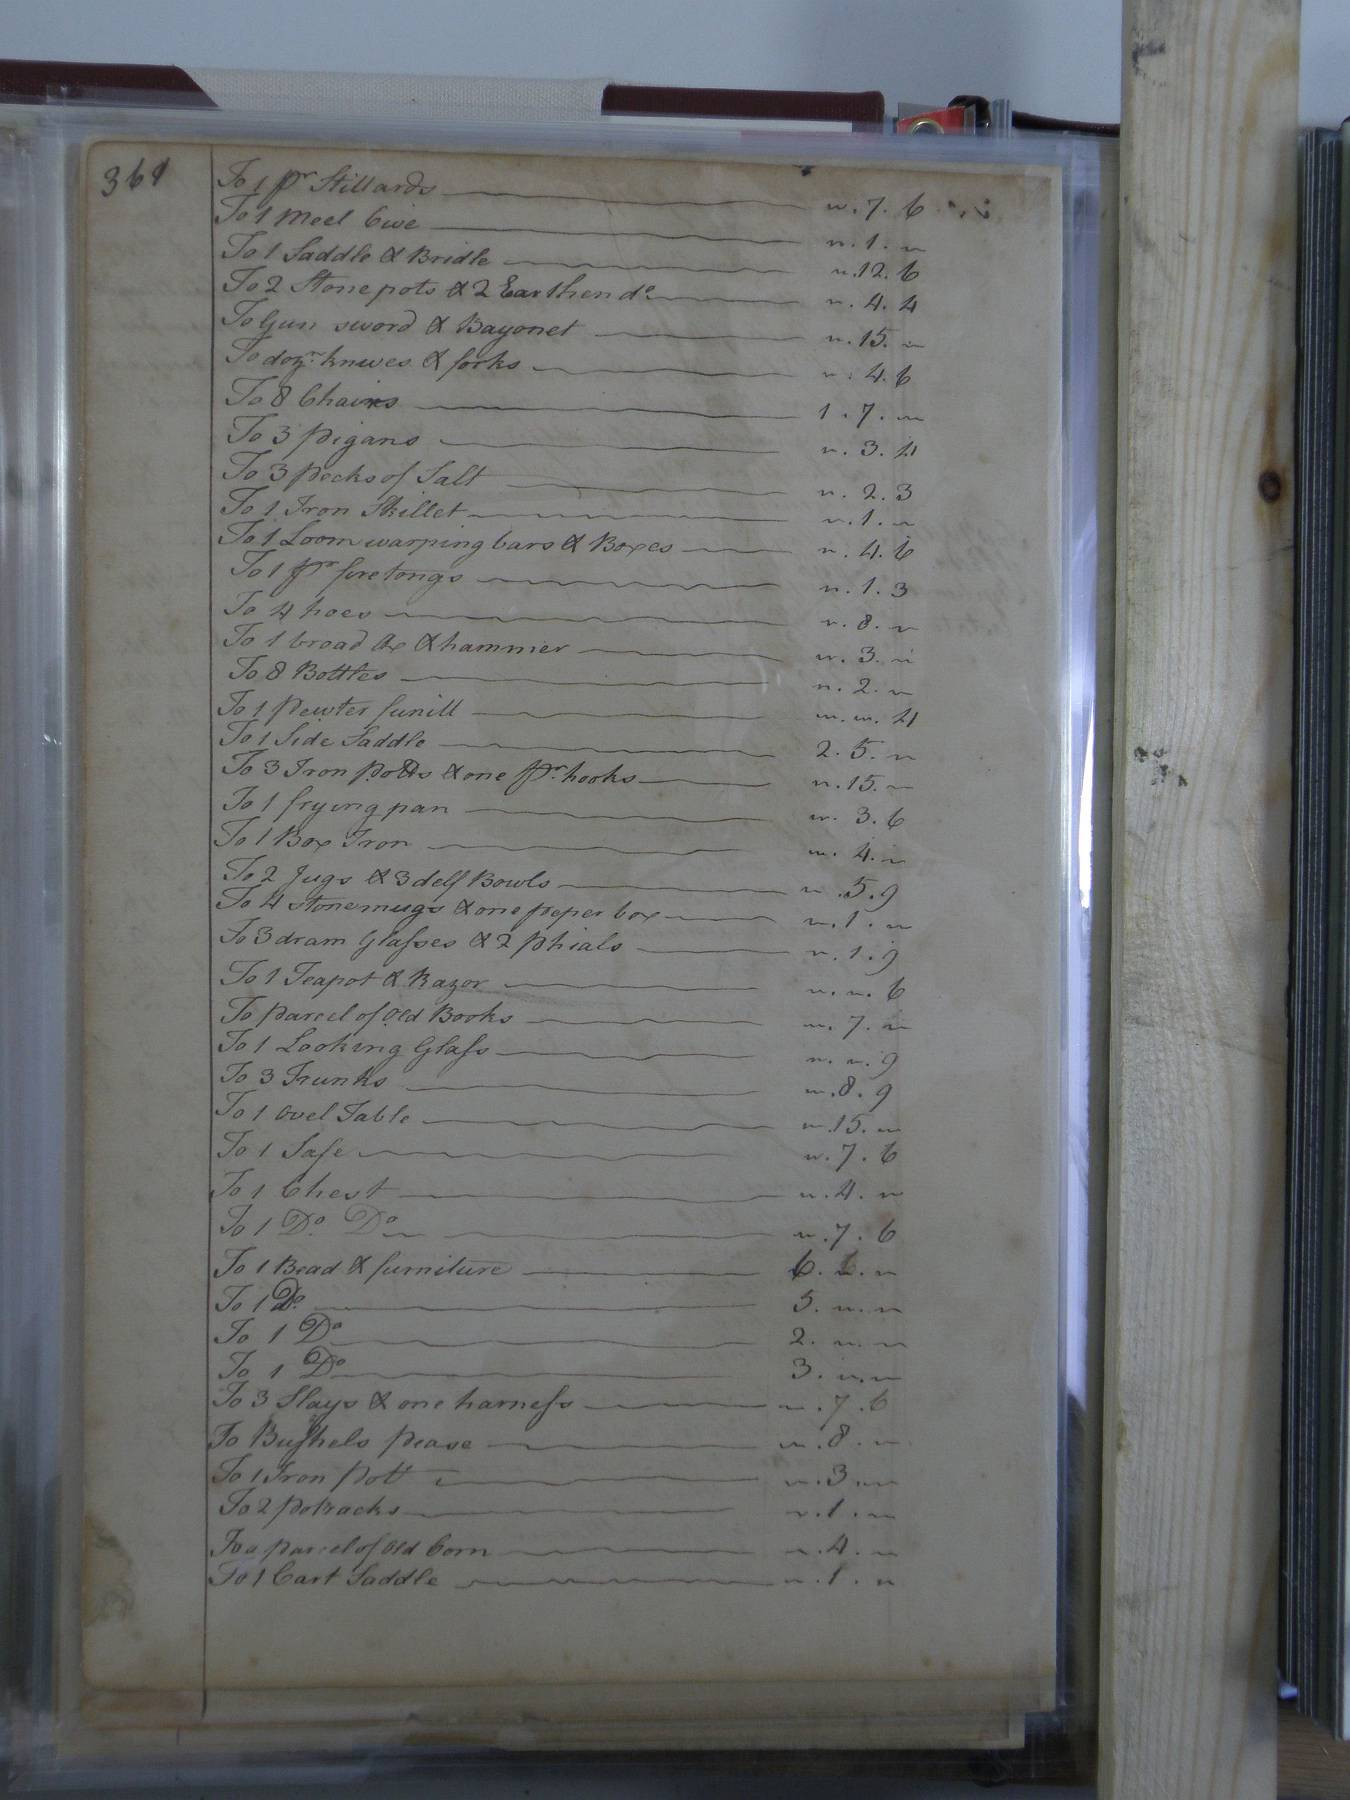 361
To 1 pr Stillards n. 7. 6
To 1 Meel Cive n. 1. n
To 1 Saddle & Bridle n. 12. 6
To 2 Stone pots & 2 Earthen do n. 4. 4
To Gun sword & Bayonet n. 15. n
To dozn knives & forks n. 4. 6
To 8 Chairs 1. 7. n
To 3 pigans n. 3. 4
To 3 pecks of Salt n. 2. 3
To 1 Iron Skillet n. 1. n
To 1 Loom warping bars & Boxes n. 4. 6
To 1 pr fire tongs n. 1. 3
To 4 hoes n. 8. n
To 1 broad Ax & hammer n. 3. n
To 8 Bottles n. 2. n
To 1 pewter funill n. n. 4
To 1 Side Saddle 2. 5. n
To 3 Iron potts & one pr hooks n. 15. n
To 1 frying pan n. 3. 6
To 1 Box Iron n. 4. n
To 2 Jugs & 3 delf Bowls n. 5. 9
To 4 stone mugs & one peper box n. 1. n
To 3 dram Glasses & 2 phials n. 1. 9
To 1 Teapot & Razor n. n. 6
To parcel of Old Books n. 7. n
To 1 Looking Glass n. n. 9
To 3 Trunks n. 8. 9
To 1 ovel Table n. 15. n
To 1 Safe n. 7. 6
To 1 Chest n. 4. n
To 1 Do. Do n. 7. 6
To 1 Bead & furniture 6. n. n
To 1 Do. 5. n. n
To 1 Do 2. n. n
To 1 Do 3. n. n
To 3 Slays & one harness n. 7. 6
To Bushels pease n. 8. n
To 1 Iron pott n. 3. n
To 2 potracks n. 1. n
To a parcel of Old Corn n. 4. n
To 1 Cart Saddle n. 1. n